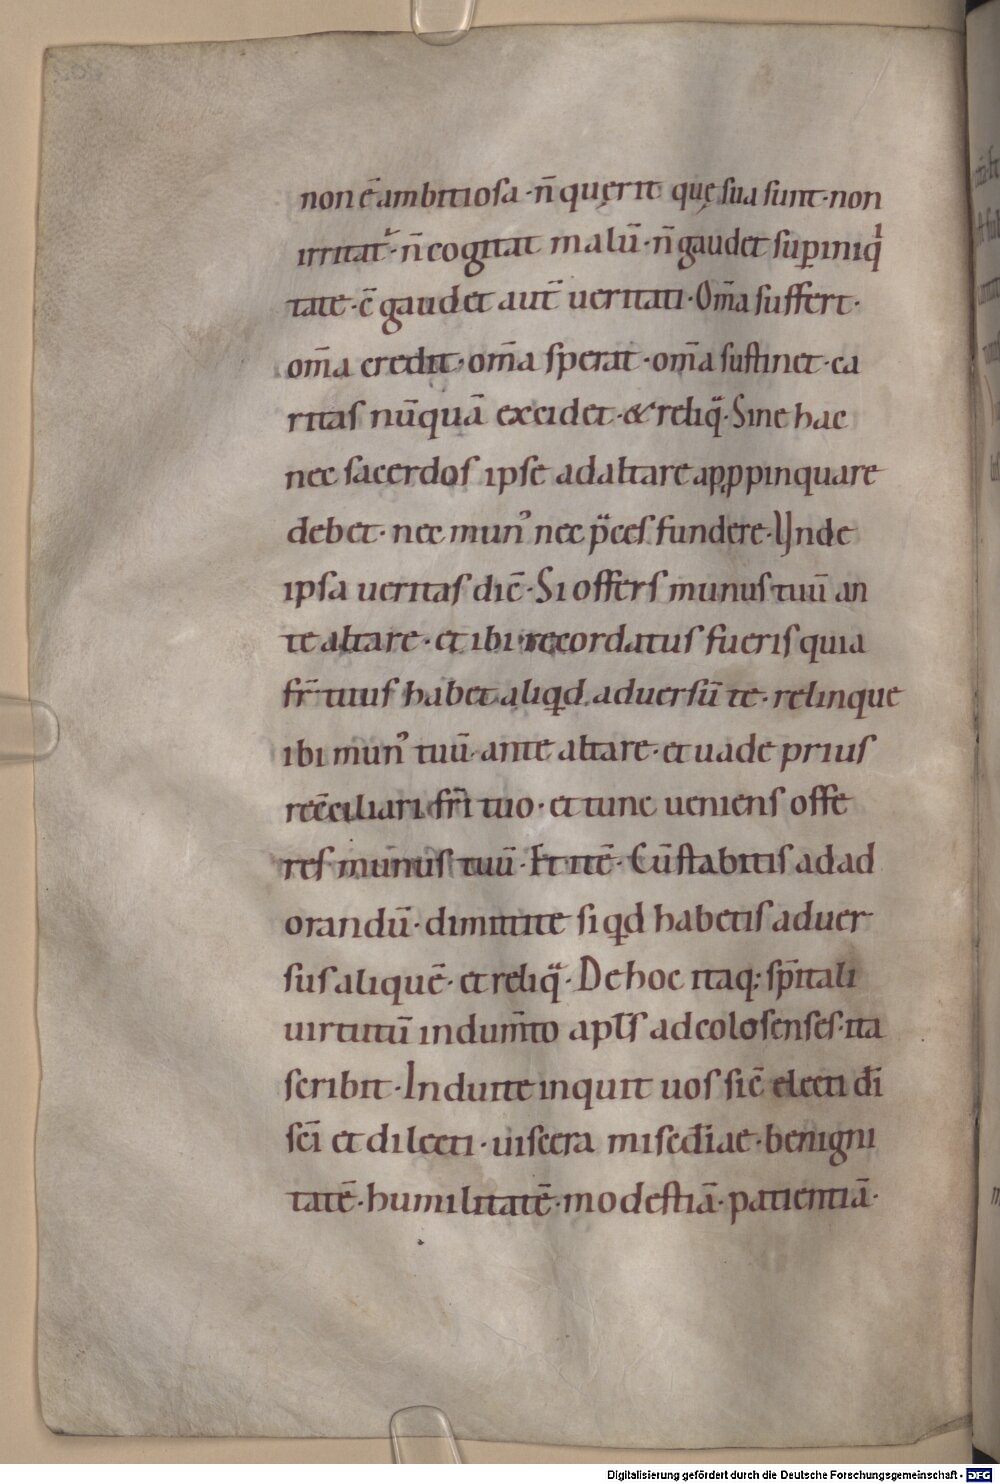 non ē ambitiosa · n̄ quęrit quę sua sunt · non
irritat᷑ · n̄ cogitat malū · n̄ gaudet sup̱ iniqͥ
tate · c̄ gaudet aut̄ ueritati · Om̄a suffert ·
om̄a credit · om̄a sperat · om̄a sustinet · ca
ritas nūquā excidet · & reliq̈ · Sine hac
nec sacerdos ipse ad altare app̱pinquare
debet · nec mun᾽ nec p̈ces fundere · Unde
ipsa ueritas dic̄ · Si offers munus tuū an
te altare · et ibi recordatus fueris quia
fr̄ tuus habet aliqd aduersū te · relinque
ibi mun᾽ tuū ante altare · et uade prius
rec̄ciliari fr̄i tuo · et tunc ueniens offe
res munus tuū · Et itē · Cū stabitis ad ad
orandū · dimittite si qd habetis aduer
sus aliquē · et reliq̈ · De hoc itaq; sp̄itali
uirtutū indum̄to apl̄s ad colosenses · ita
scribit · Induite inquit uos sic̄ electi dī
sc̄i et dilecti · uiscera misēdiae · benigni
tatē · humilitatē · modestiā · patientiā ·
Digitalisierung gefördert durch die Deutsche Forschungsgemeinschaft - DFG